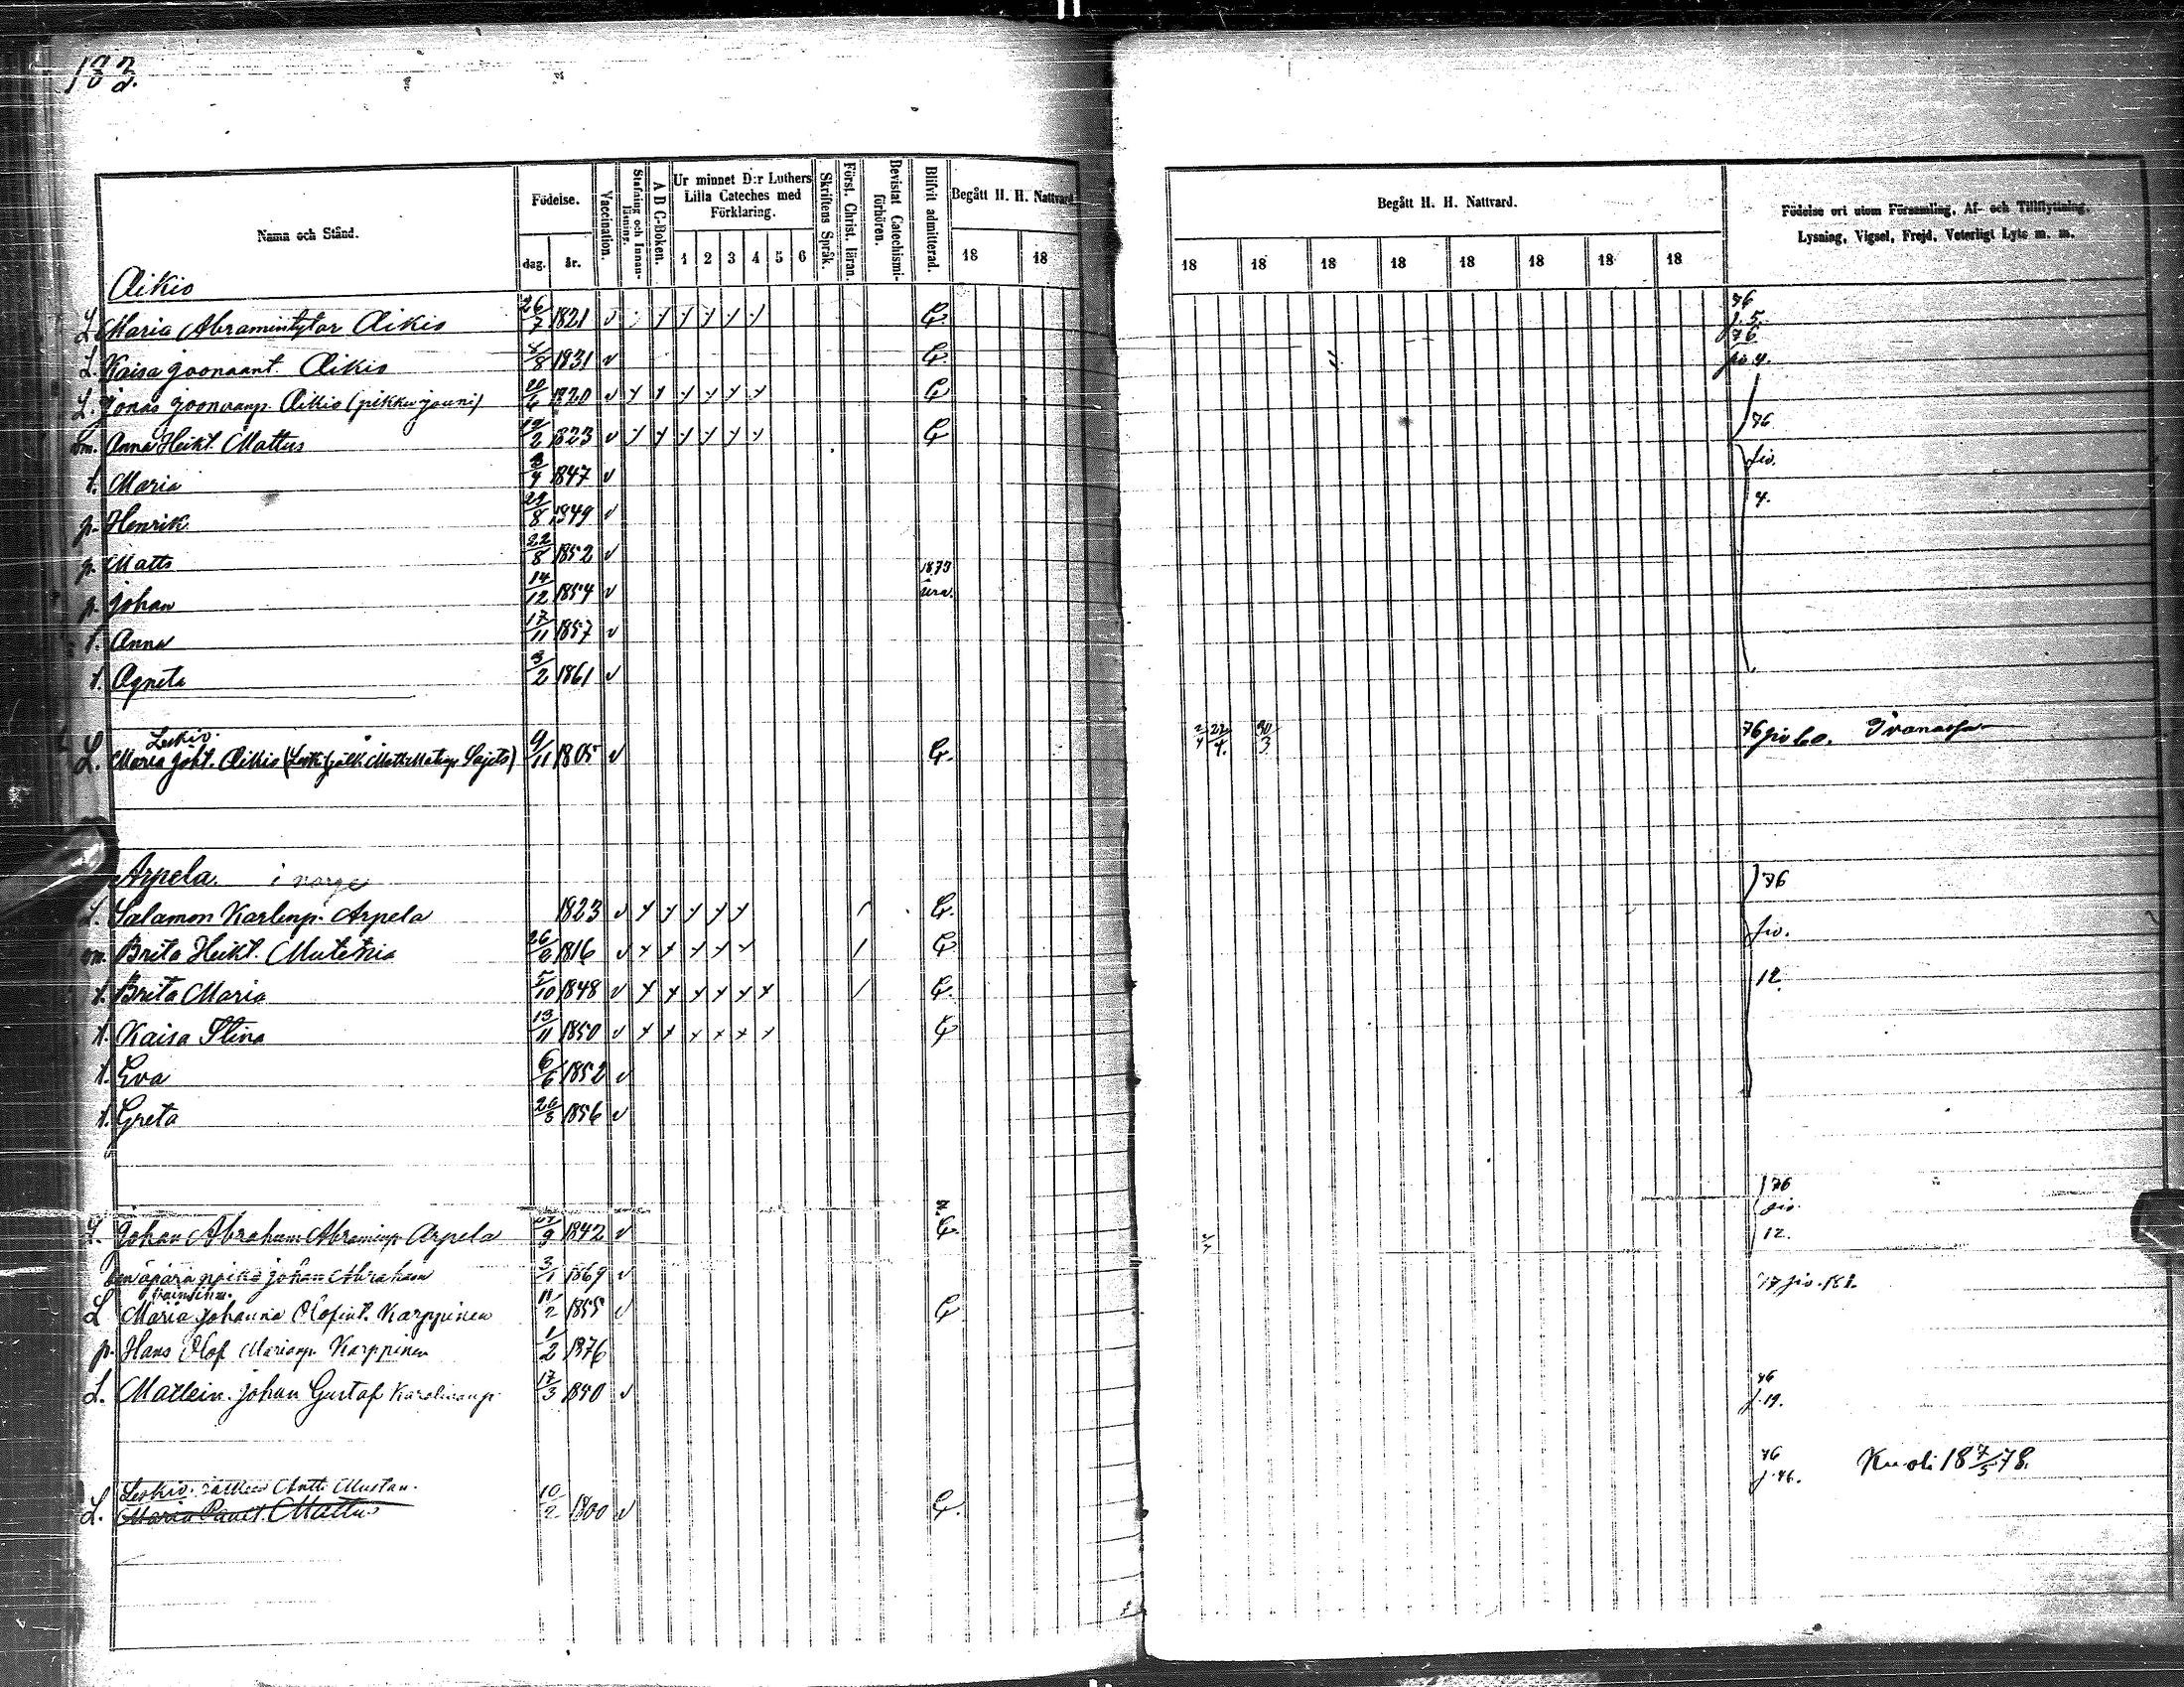 183.
Nama och Stånd.
Födelse.
dag. år.
Vaccination.
Stafning och Innanläsning.
A B C-Boken.
Ur minnet D:r Luthers Lilla Cateches med Förklaring.
1 2 3 4 5 6
Skriftens Språk.
Först. Christ. läran.
Bevistat Catechismiförhören.
Blifvit admitterad.
Begått H. H. Nattvard
18 18
Begått H. H. Nattvard.
18 18 18 18 18 18 18 18
Födelse ort utom Församling, Af- och Tillflyttning,
Lysning, Vigsel, Frejd, Veterligt Lyte m. m.
Aikio
L. Maria Abramintytär Aikio 26/7 1821 v G. 76 f. 5.
L. Kaisa Joonaant. Aikio 4/8 1831 v G. 76 siv. 4.
L. Jonas Joonaanp. Aikio (pikku Jouni) 20/6 1820 v G 76
vm. Anna Heikt. Mattus 12/2 1823 v G
t. Maria 3/4 1847 v siv.
p. Henrik 29/8 1849 v 4.
p. Matts 22/8 1852 v
p. Johan 14/12 1854 v 1875
t. Anna 17/11 1857 v
t. Agneta 3/2 1861 v
Leskiv.
L. Maria Joht. Aikio 9/11 1805 v G. 2/4 22/4. 30/3 76 siv 60.
Arpela. i norge 76
L. Salamon Karlinp. Arpela 1823 v G.
vm. Brita Heikt. Mutenia 26/6 1816 v G siv.
t. Brita Maria 5/10 1848 v G. 12.
t. Kaisa Stina 13/11 1850 v G
t. Eva 6/6 1852 v
t. Greta 26/3 1856 v
76
siv.
L. Johan Abraham Abraminp. Arpela 9 1842 v G. 12.
äpärä poika Johan Abraham 3/1 1869 v 77 siv.
L Maria Johanna Olofint. Karppinen 11/2 1855 v G
p. Hans Olof Marianp. Karppinen 1/2 1876
L. Matlein. Johan Gustaf Karolinanp. 17/3 1850 v 76 f. 19.
Leskiv. Antti Mustan.
L. Maria Pault. Mattus 10/2 1800 v G. 76 f. 46. Kuoli 18 7/5 78.